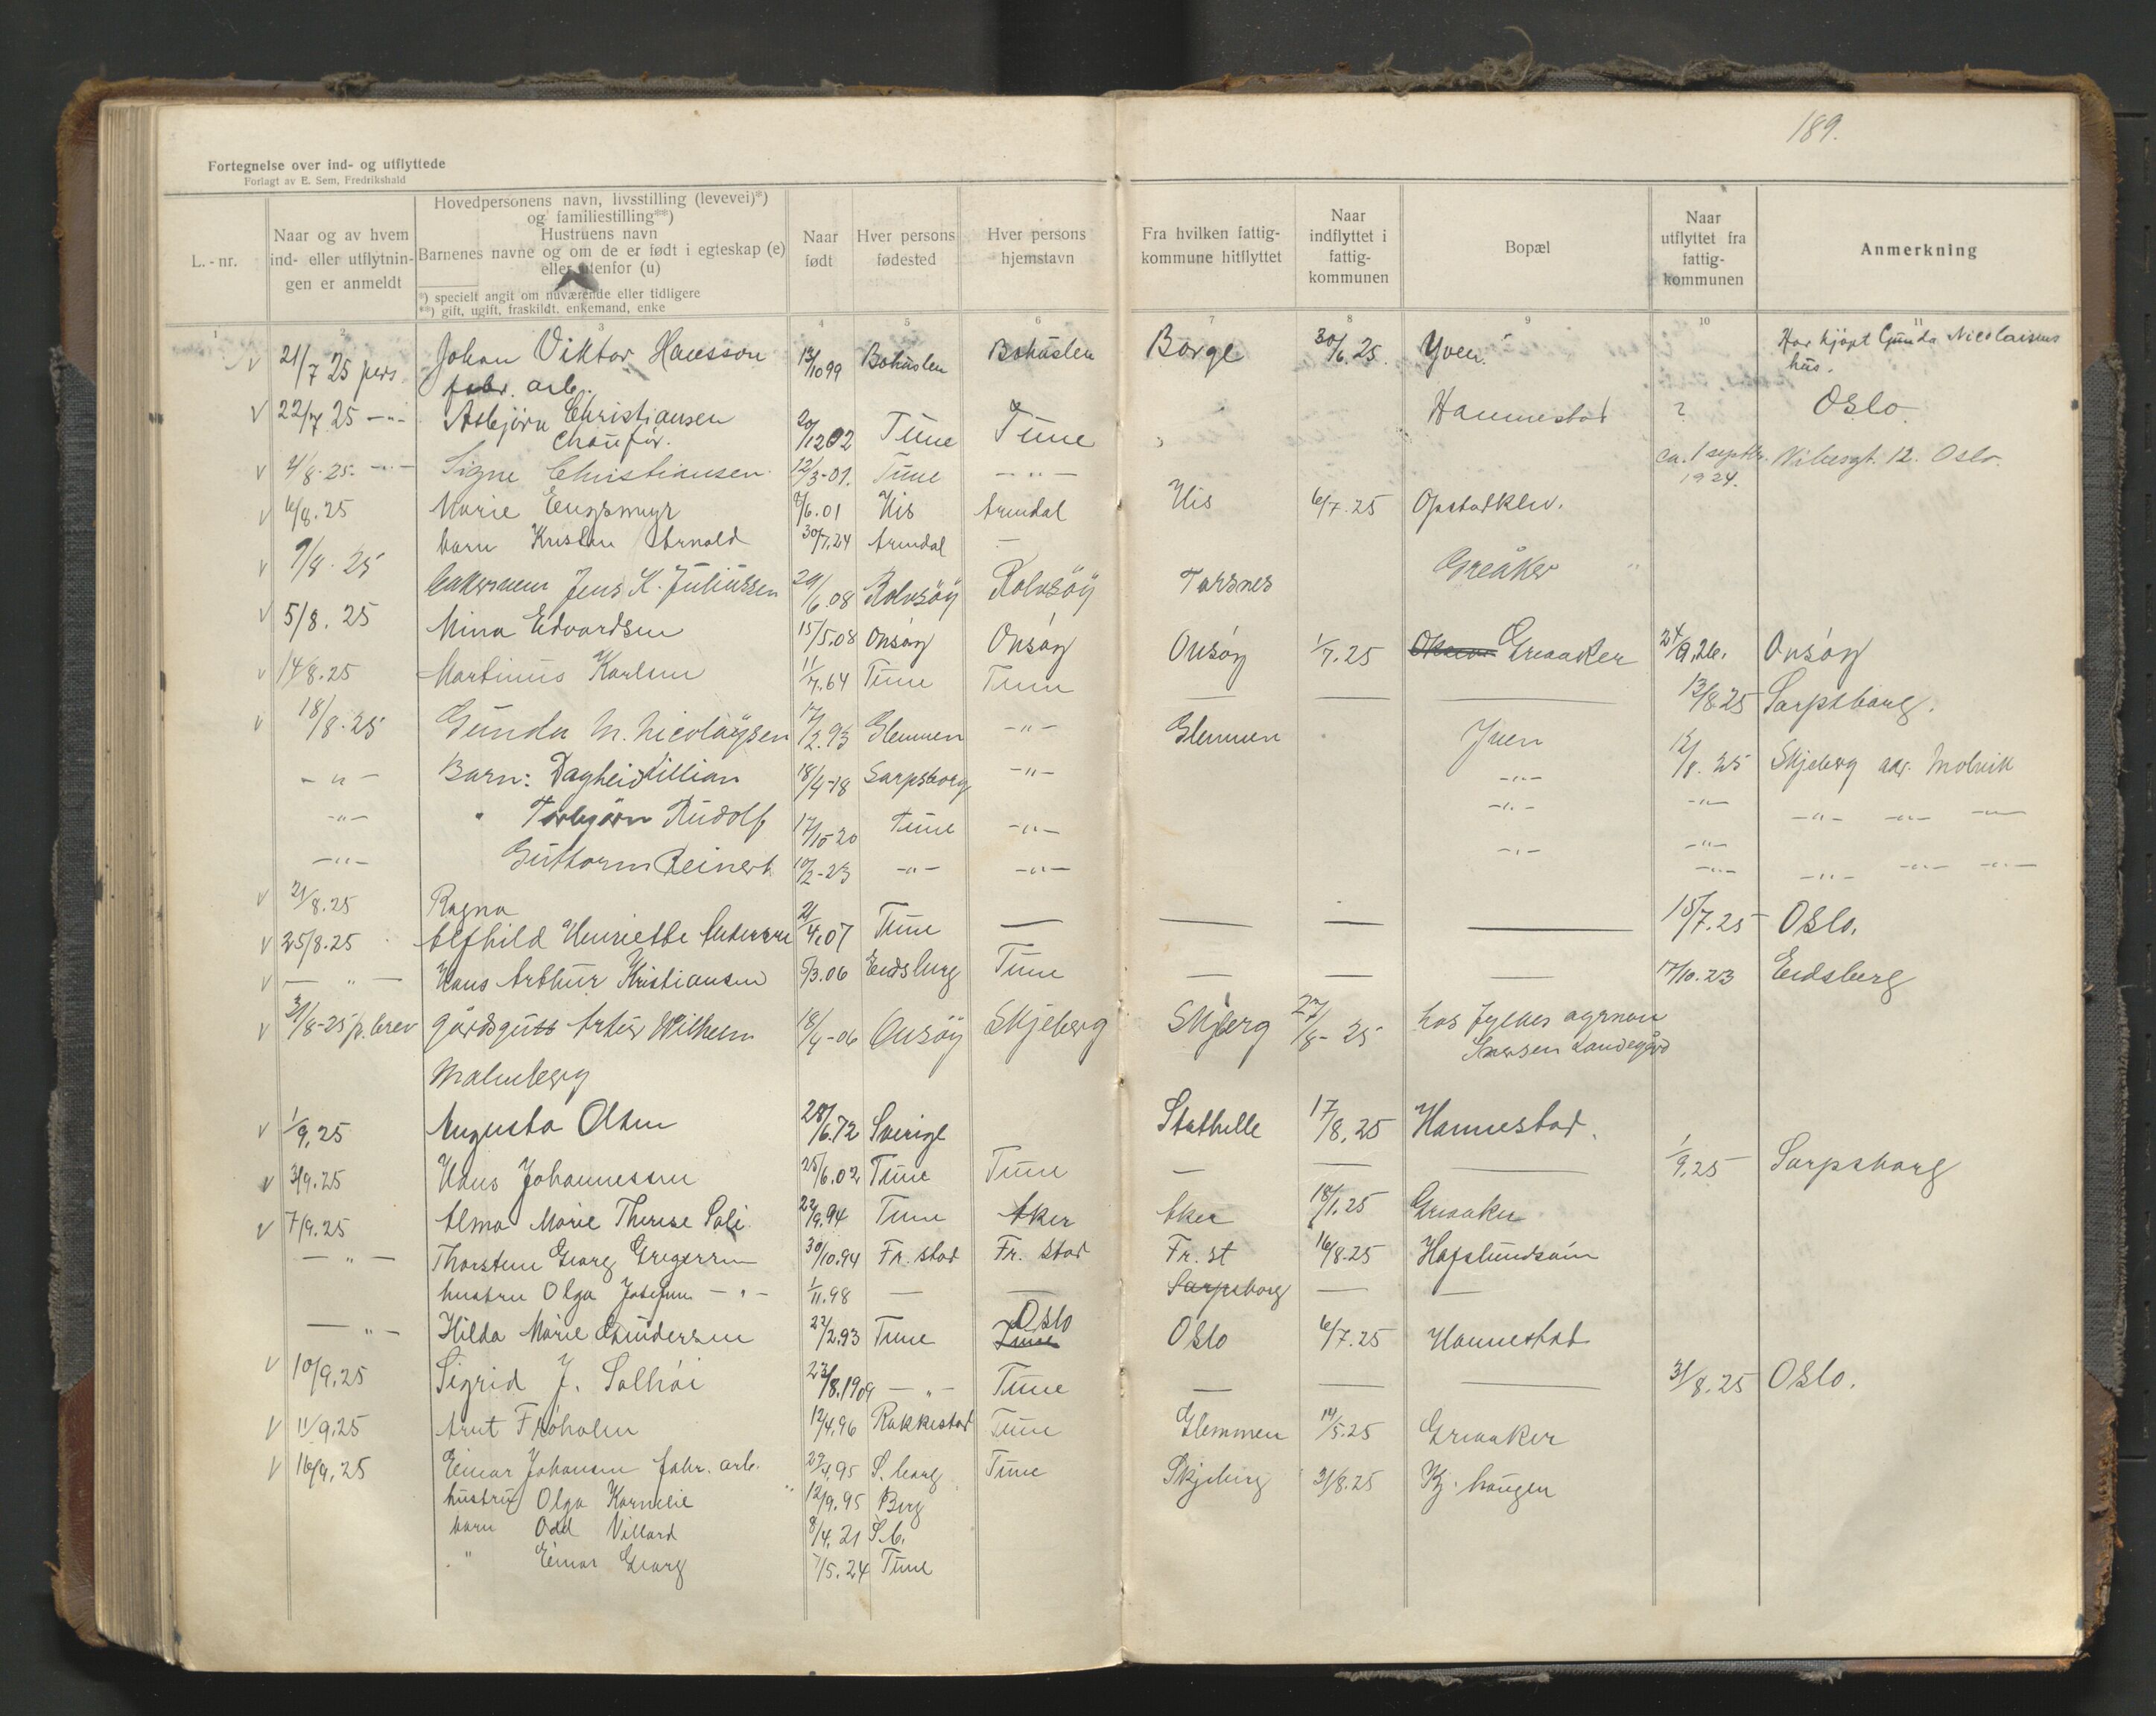 189.
Fortegnelse over ind- og utflyttede
Forlagt av E. Sem, Fredrikshald
L.-nr.
Naar og av hvem ind- eller utflytnin- gen er anmeldt
Hovedpersonens navn, livsstilling (levevei)*)
og familiestilling**)
Hustruens navn
Barnenes navne og om de er født i egteskap (e)
eller utenfor (u)
*) specielt angit om nuværende eller tidligere
**) gift, ugift, fraskildt, enkemand, enke
Naar født
Hver persons fødested
Hver persons hjemstavn
Fra hvilken fattig- kommune hitflyttet
Naar indflyttet i fattig- kommunen
Bopæl
Naar utflyttet fra fattig- kommunen
Anmerkning
1 2 3 4 5 6 7 8 9 10 11
v 21/7 25 pers Johan Viktor Hansson 13/10 99 Bohuslen Bohuslen Borge 30/6.25. Yven. Har kjöpt Gunda Nicolaisens
fabr. arb. hus.
v 22/7 25 -"- Asbjörn Christiansen 20/12 02 Tune Tune Hannestad ? Oslo
Chaufør.
v 4/8.25. -"- Signe Christiansen 12/3-01. Tune -"- ca. 1 septbr. 1924. Oslo.
v 6/8.25 Marie 8/6.01 His Arendal His 6/7.25 Opstadklev.
barn Arnold 30/7.24 Arendal -
v 7/8.25 Jens K. Juliussen 29/6.08 Rolvsöy Rolvsöy Torsnes Greåker
v 5/8.25 Mina Edvardsen 15/5.08 Onsöy Onsöy Onsöy 1/7.25 Greaaker 24/9.26. Onsöy
v 14/8.25 Martinius Karlsen 11/7.64 Tune Tune — — — 13/8 25 Sarpsborg.
v 18/8.25 Gunda M. Nicolaysen 17/2.93 Glemmen -"- Glemmen Yven 12/8.25 Skjeberg adr. Molvik
-"- Barn: Dagheid Lillian 18/4-18 Sarpsborg -"- -"- -"- -"- -"- -"-
-"- " Torbjørn Rudolf 17/10-20 Tune -"- -"- -"-
-"- Guttorm Reinert 10/2-23 -"- -"- -"- -"- -"- -"-
v 21/8.25 Ragna
v 25/8.25 Alfhild Henriette Andersen 21/4.07 Tune — — — — 15/7.25 Oslo.
v — " — Hans Arthur Kristiansen 5/3.06 Eidsberg Tune — — — 17/10.23 Eidsberg
v 31/8-25 p. brev Gårdsgutt Artur Wilhelm 18/4-06 Onsöy Skjeberg Skjeberg 27/8-25 hos fylkes agronom
Malmberg Landegård
v 1/9.25 Augusta Olsen 28/6.72 Sverige Stathelle 17/8.25 Hannestad.
v 3/9.25 Hans Johannessen 25/6.02 Tune Tune — — — 1/9.25 Sarpsborg
v 7/9.25 Alma Marie Therese Soli 22/9.94 Tune Aker Aker 18/1.25 Greaaker
— " — Thorsten Georg Gregersen 30/10.94 Fr. stad Fr. stad Fr. st 16/8.25 Hafslundsöin
hustru Olga Josefine -"- 1/11.98 — — Sarpsborg — —
— " — Hilda Marie Gundersen 22/2.93 Tune Oslo Tune Oslo 6/7.25 Hannestad
v 10/9.25 Sigrid J. Solhöi 23/8.1909 -"- Tune — — — 31/8.25 Oslo.
v 11/9.25 Arnt Fröholm 12/4.96 Rakkestad Tune Glemmen 14/5.25 Greaaker
v 16/9.25 Einar Johansen fabr. arb. 27/4.95 S.borg Tune Skjeberg 31/8.25 Kj. haugen
hustru Olga Kornelie 12/9.95 Berg
barn Odd Villard 8/4.21 S.b.
" Einar Georg 7/5.24 Tune